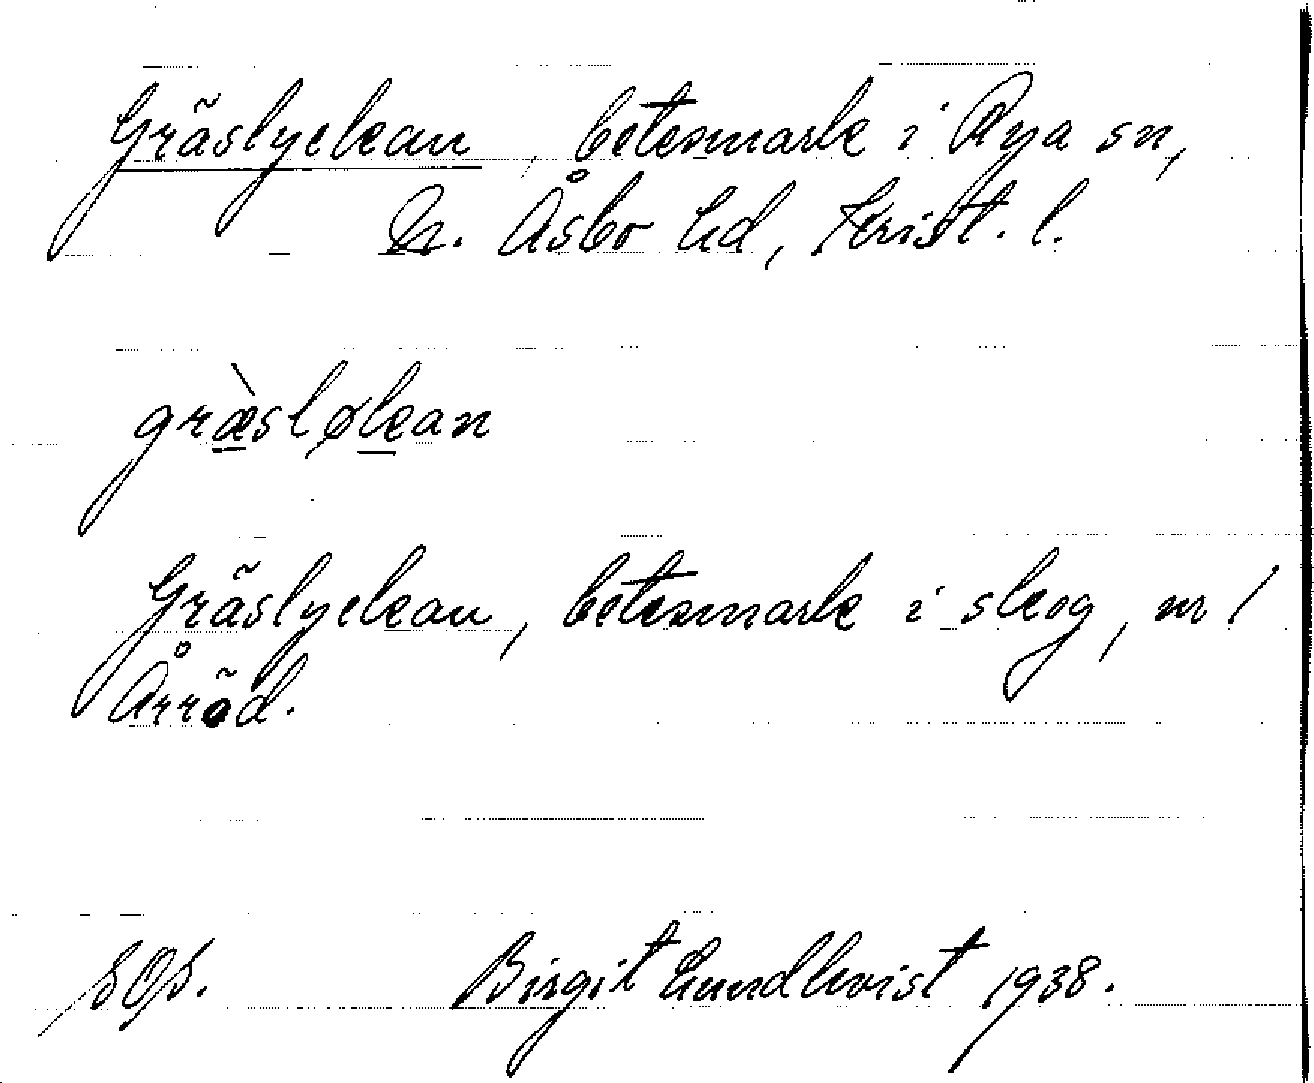 Gräslyckan, betesmark i Rya sn,
N. Åsbo hd, Krist. l.
græ̀sløkan
Gräslyckan, betesmark i skog, nr 1
Årröd.
SOS. Birgit Lundkvist 1938.